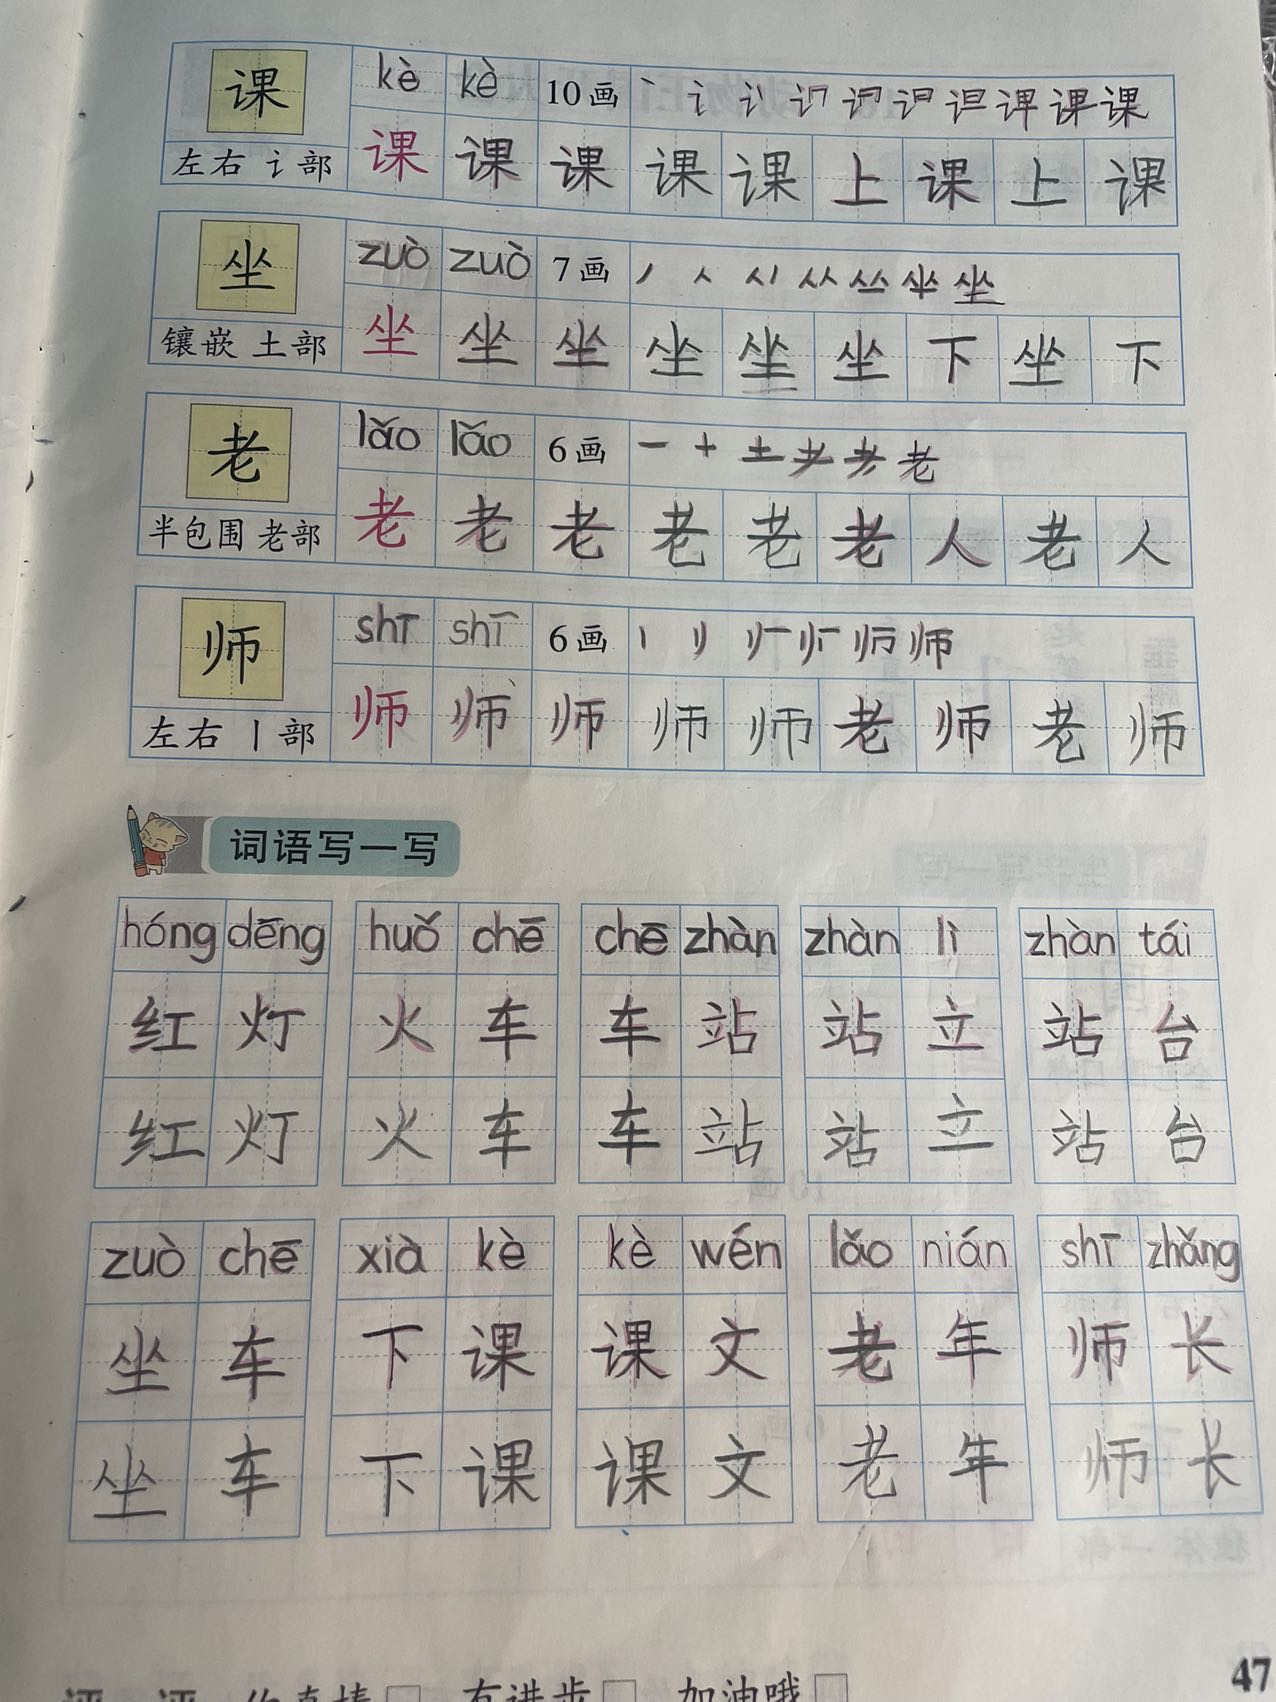 课 kè kè 10画 丶 讠 课 课
左右 讠部 课 课 课 课 课 上 课 上 课
坐 zuò zuò 7画 丿 人 坐
镶嵌 土部 坐 坐 坐 坐 坐 坐 下 坐 下
老 lǎo lǎo 6画 一 十 土 耂 老
半包围 老部 老 老 老 老 老 老 人 老 人
师 shī shī 6画 丨 师
左右 丨部 师 师 师 师 师 老 师 老 师
词语写一写
hóng dēng huǒ chē chē zhàn zhàn lì zhàn tái
红 灯 火 车 车 站 站 立 站 台
红 灯 火 车 车 站 站 立 站 台
zuò chē xià kè kè wén lǎo nián shī zhǎng
坐 车 下 课 课 文 老 年 师 长
坐 车 下 课 课 文 老 年 师 长
有进步 加油哦
47